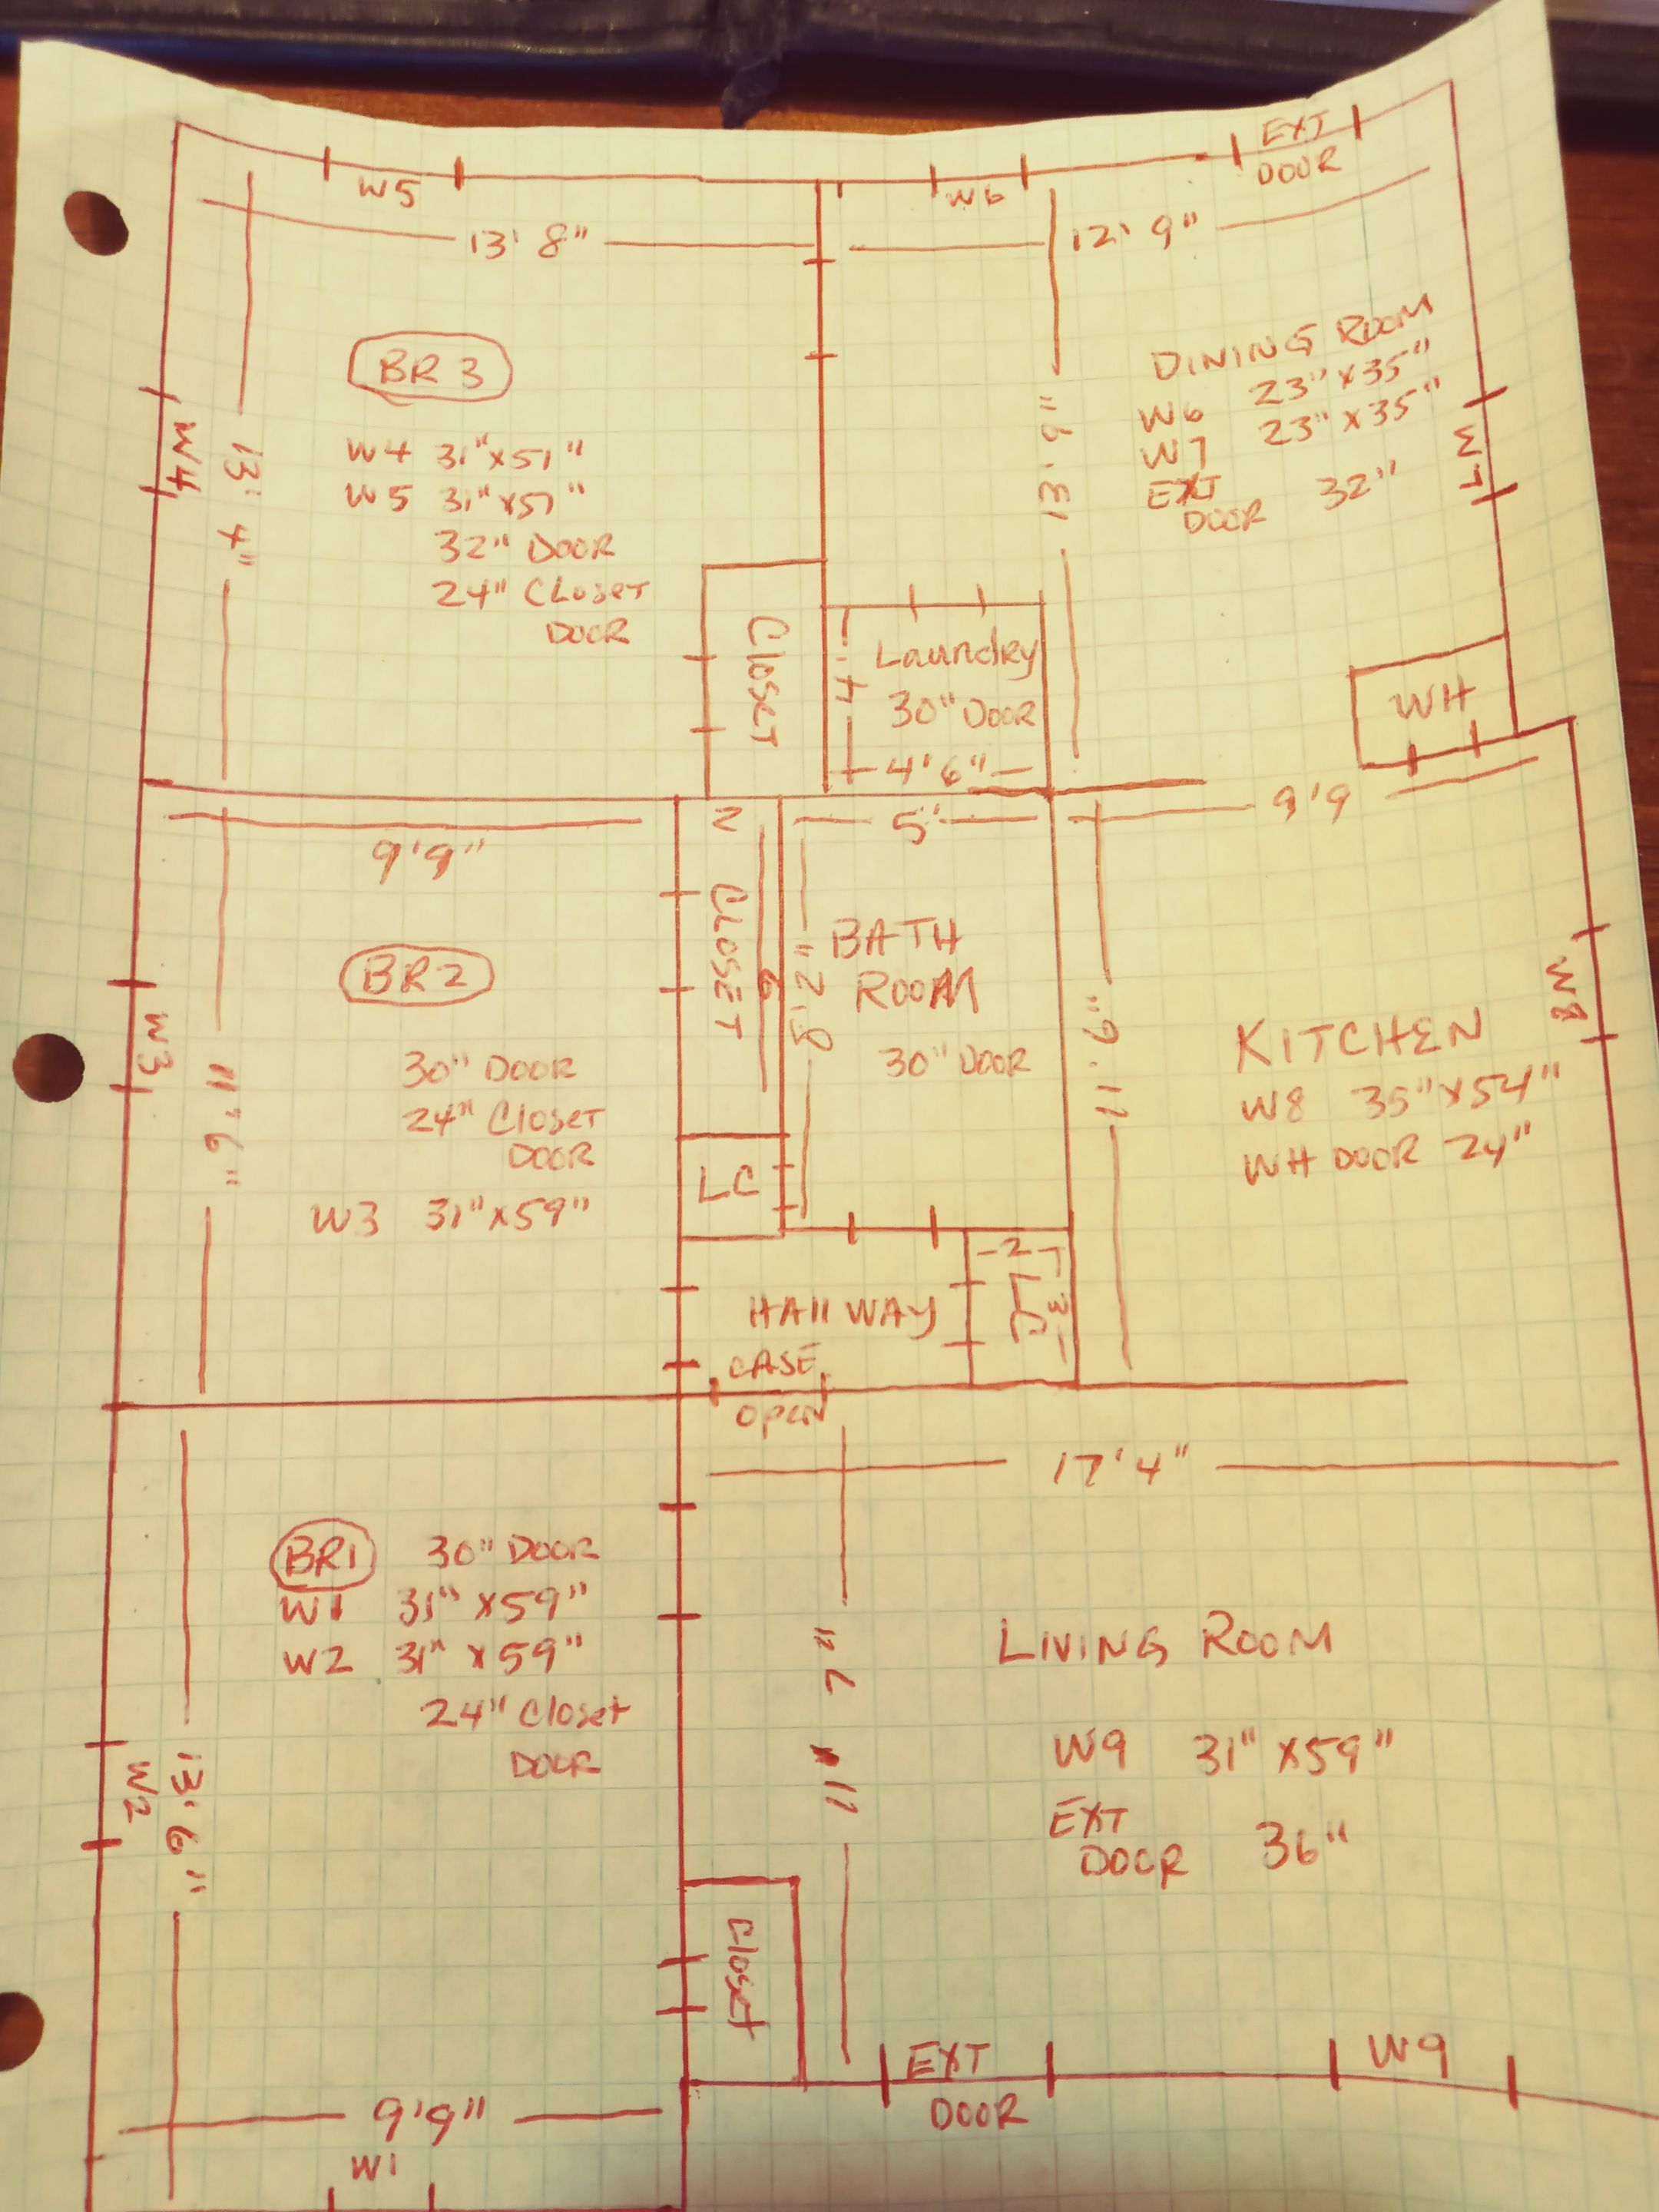 EXT
DOOR
W5
W6
13' 8"
12' 9"
BR 3
W4 31"x51"
W5 31"x51"
32" DOOR
24" CLoset
DOOR
W4
13' 4"
13' 9"
DINING ROOM
W6 23"x35"
W7 23"x35"
EXT
DOOR 32"
W7
CloseT
4'
Laundry
30" DOOR
4' 6"
WH
9'9"
2
5'
9'9
BR2
30" DOOR
24" Closet
DOOR
W3 31"x59"
W3
11' 6"
CLOSET
6
8' 2"
BATH
ROOM
30" DOOR
LC
11' 6"
KITCHEN
W8 35"x54"
WH DOOR 24"
W8
HAllWAY
2
3
CASE
OPEN
17'4"
BR1 30" DOOR
W1 31"x59"
W2 31"x59"
24" Closet
DOOR
W2
13' 6"
LIVING ROOM
W9 31"x59"
EXT
DOOR 36"
Closet
EXT
DOOR
W9
9'9"
W1